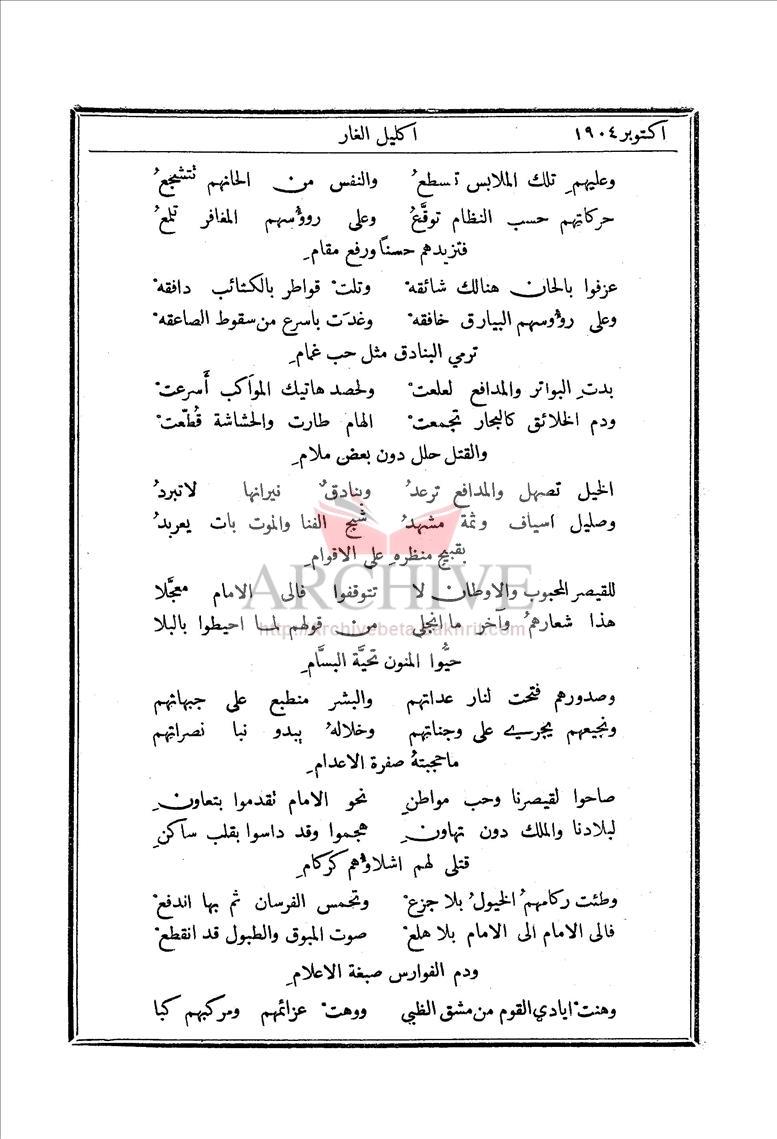 اكتوبر ١٩٠٤ اكليل الغار
وعليهمِ تلك الملابس تسطعُ والنفس من الحانهم تتشجعُ
حركاتهم حسب النظام توقَّعُ وعلى روؤسهم المغافر تلمعُ
فتزيدهم حسناً ورفع مقامِ
عزفوا بالحان هنالك شائقه وتلت قواطر بالكتائب دافقه
وعلى روؤسهم البيارق خافقه وغدَت باسرع من سقوط الصاعقه
ترمي البنادق مثل حب غمامِ
بدتِ البواتر والمدافع لعلعت ولحصد هاتيك المواكب أَسرعت
ودم الخلائق كالبحار تجمعت الهام طارت والحشاشة قُطّعت
والقتل حلل دون بعض ملامِ
الخيل تصهل والمدافع ترعدُ وبنادقٌ نيرانها لاتبردُ
وصليل اسياف وثمة مشهدُ شبح الفنا والموت بات يعربدُ
بقبيح منظرهِ على الاقوامِ
ARCHIVE
للقيصر المحبوب والاوطان لا تتوقفوا فالى الامام معجَّلا
http://archivebeta.Sakhrit.com
هذا شعارهمُ وآخر ما انجلى من قولهم لما احيطوا بالبلا
حيُّوا المنون تحيَّة البسَّامِ
وصدورهم فتحت لنار عداتهم والبشر منطبع على جبهاتهم
ونجيعهم يجري على وجناتهم وخلالهُ يبدو نبا نصراتهم
ماحجبتهُ صفرة الاعدامِ
صاحوا لقيصرنا وحب مواطنِ نحو الامام تقدموا بتعاونِ
لبلادنا والملك دون تهاونِ هجموا وقد داسوا بقلب ساكنِ
قتلى لهم اشلاؤهم كركامِ
وطئت ركامهمُ الخيولُ بلا جزع وتحمس الفرسان ثم بها اندفع
فالى الامام الى الامام بلا هلع صوت المبوق والطبول قد انقطع
ودم الفوارس صبغة الاعلامِ
وهنت ايادي القوم من مشق الظبى ووهت عزائمهم ومركبهم كبا